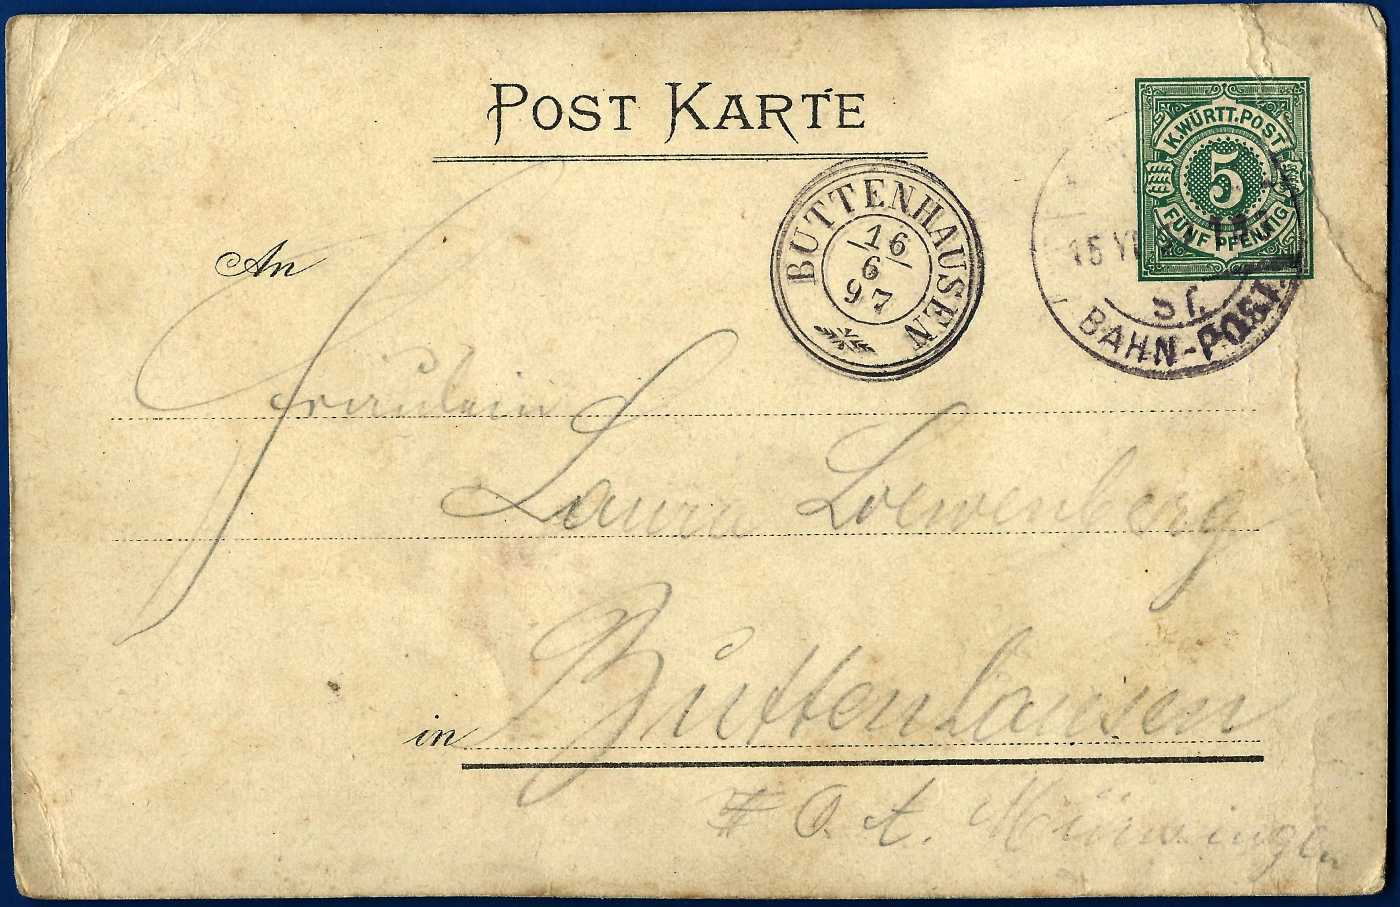 POST KARTE
K.WÜRTT.POST
5
FÜNF PFENNIG
BUTTENHAUSEN
16
6
97
15 VI
ST.
BAHN-POST.
An
Fräulein
Laura Loewenberg
in Buttenhausen
O. A. Münsingen